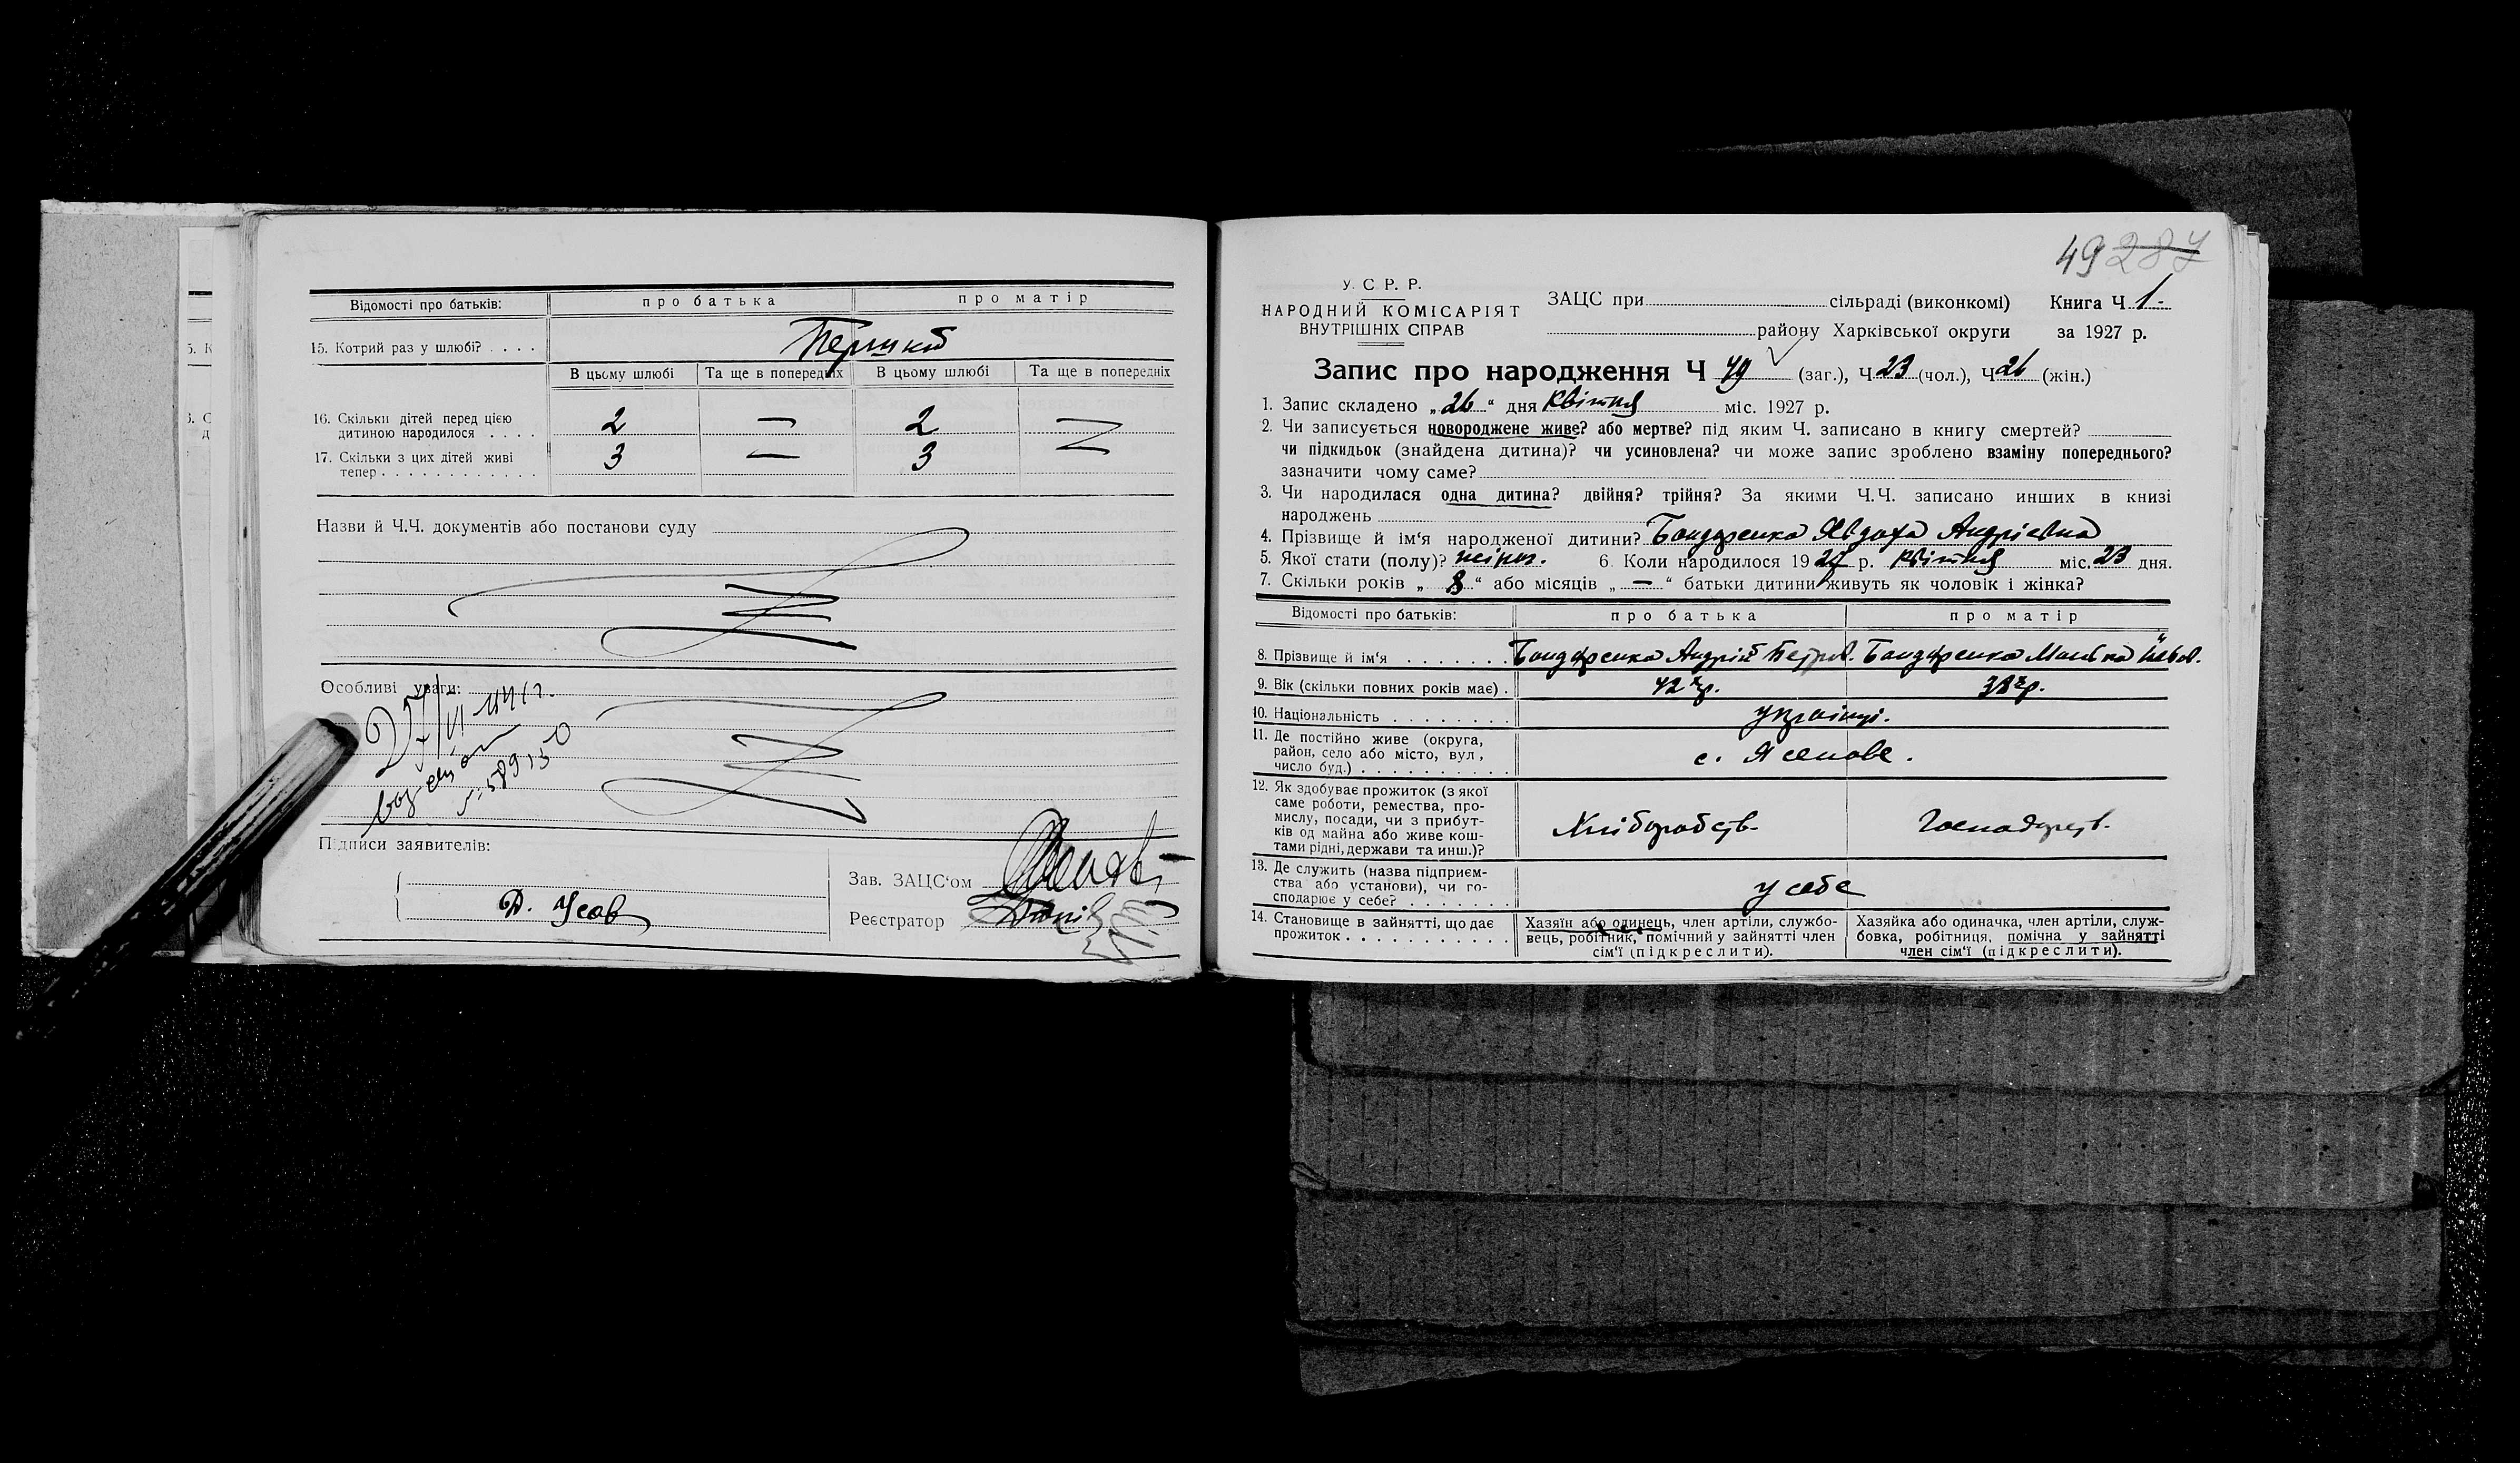 Відомості про батьків: про батька про матір
15. Котрий раз у шлюбі? . . . .
В цьому шлюбі Та ще в попередніх В цьому шлюбі Та ще в попередніх
16. Скільки дітей перед цією
дитиною народилося . . . . 2 — 2 —
17. Скільки з цих дітей живі
тепер . . . . . . . . . . . . 3 — 3 —
Назви й Ч.Ч. документів або постанови суду
Особливі уваги:
Підписи заявителів:
Д. Усов
Зав. ЗАЦС‘ом
Реєстратор
49 287
У. С. Р. Р.
НАРОДНИЙ КОМІСАРІЯТ
ВНУТРІШНІХ СПРАВ
ЗАЦС при сільраді (виконкомі) Книга Ч 1.
району Харківської округи за 1927 р.
Запис про народження Ч 49 (заг.), Ч 23 (чол.), Ч 26 (жін.)
1. Запис складено „ 26 “ дня Квітня міс. 1927 р.
2. Чи записується новороджене живе? або мертве? під яким Ч. записано в книгу смертей?
чи підкидьок (знайдена дитина)? чи усиновлена? чи може запис зроблено взаміну попереднього?
зазначити чому саме?
3. Чи народилася одна дитина? двійня? трійня? За якими Ч.Ч. записано инших в книзі
народжень
4. Прізвище й ім‘я народженої дитини? Бондаренко Явдоха Андріевна
5. Якої стати (полу)? жіноч. 6. Коли народилося 1927 р. квітня міс. 23 дня.
7. Скільки років „ 8 “ або місяців „ — “ батьки дитини живуть як чоловік і жінка?
Відомості про батьків: про батька про матір
8. Прізвище й ім‘я . . . . . . . Бондаренко Андрій Петров. Бондаренко
9. Вік (скільки повних років має) . 42 р. 38 р.
10. Національність . . . . . . . . українці.
11. Де постійно живе (округа,
район, село або місто, вул.,
число буд.) . . . . . . . . . . . с. Ясенове.
12. Як здобуває прожиток (з якої
саме роботи, ремества, про-
мислу, посади, чи з прибут-
ків од майна або живе кош-
тами рідні, держави та инш.)? Хліборобств. Господарств.
13. Де служить (назва підприєм-
ства або установи), чи го-
сподарює у себе? . . . . . . . у себе
14. Становище в зайнятті, що дає
прожиток . . . . . . . . . . . .
Хазяїн або одинець, член артіли, службо-
вець, робітник, помічний у зайнятті член
сім‘ї (підкреслити).
Хазяйка або одиначка, член артіли, служ-
бовка, робітниця, помічна у зайнятті
член сім‘ї (підкреслити).